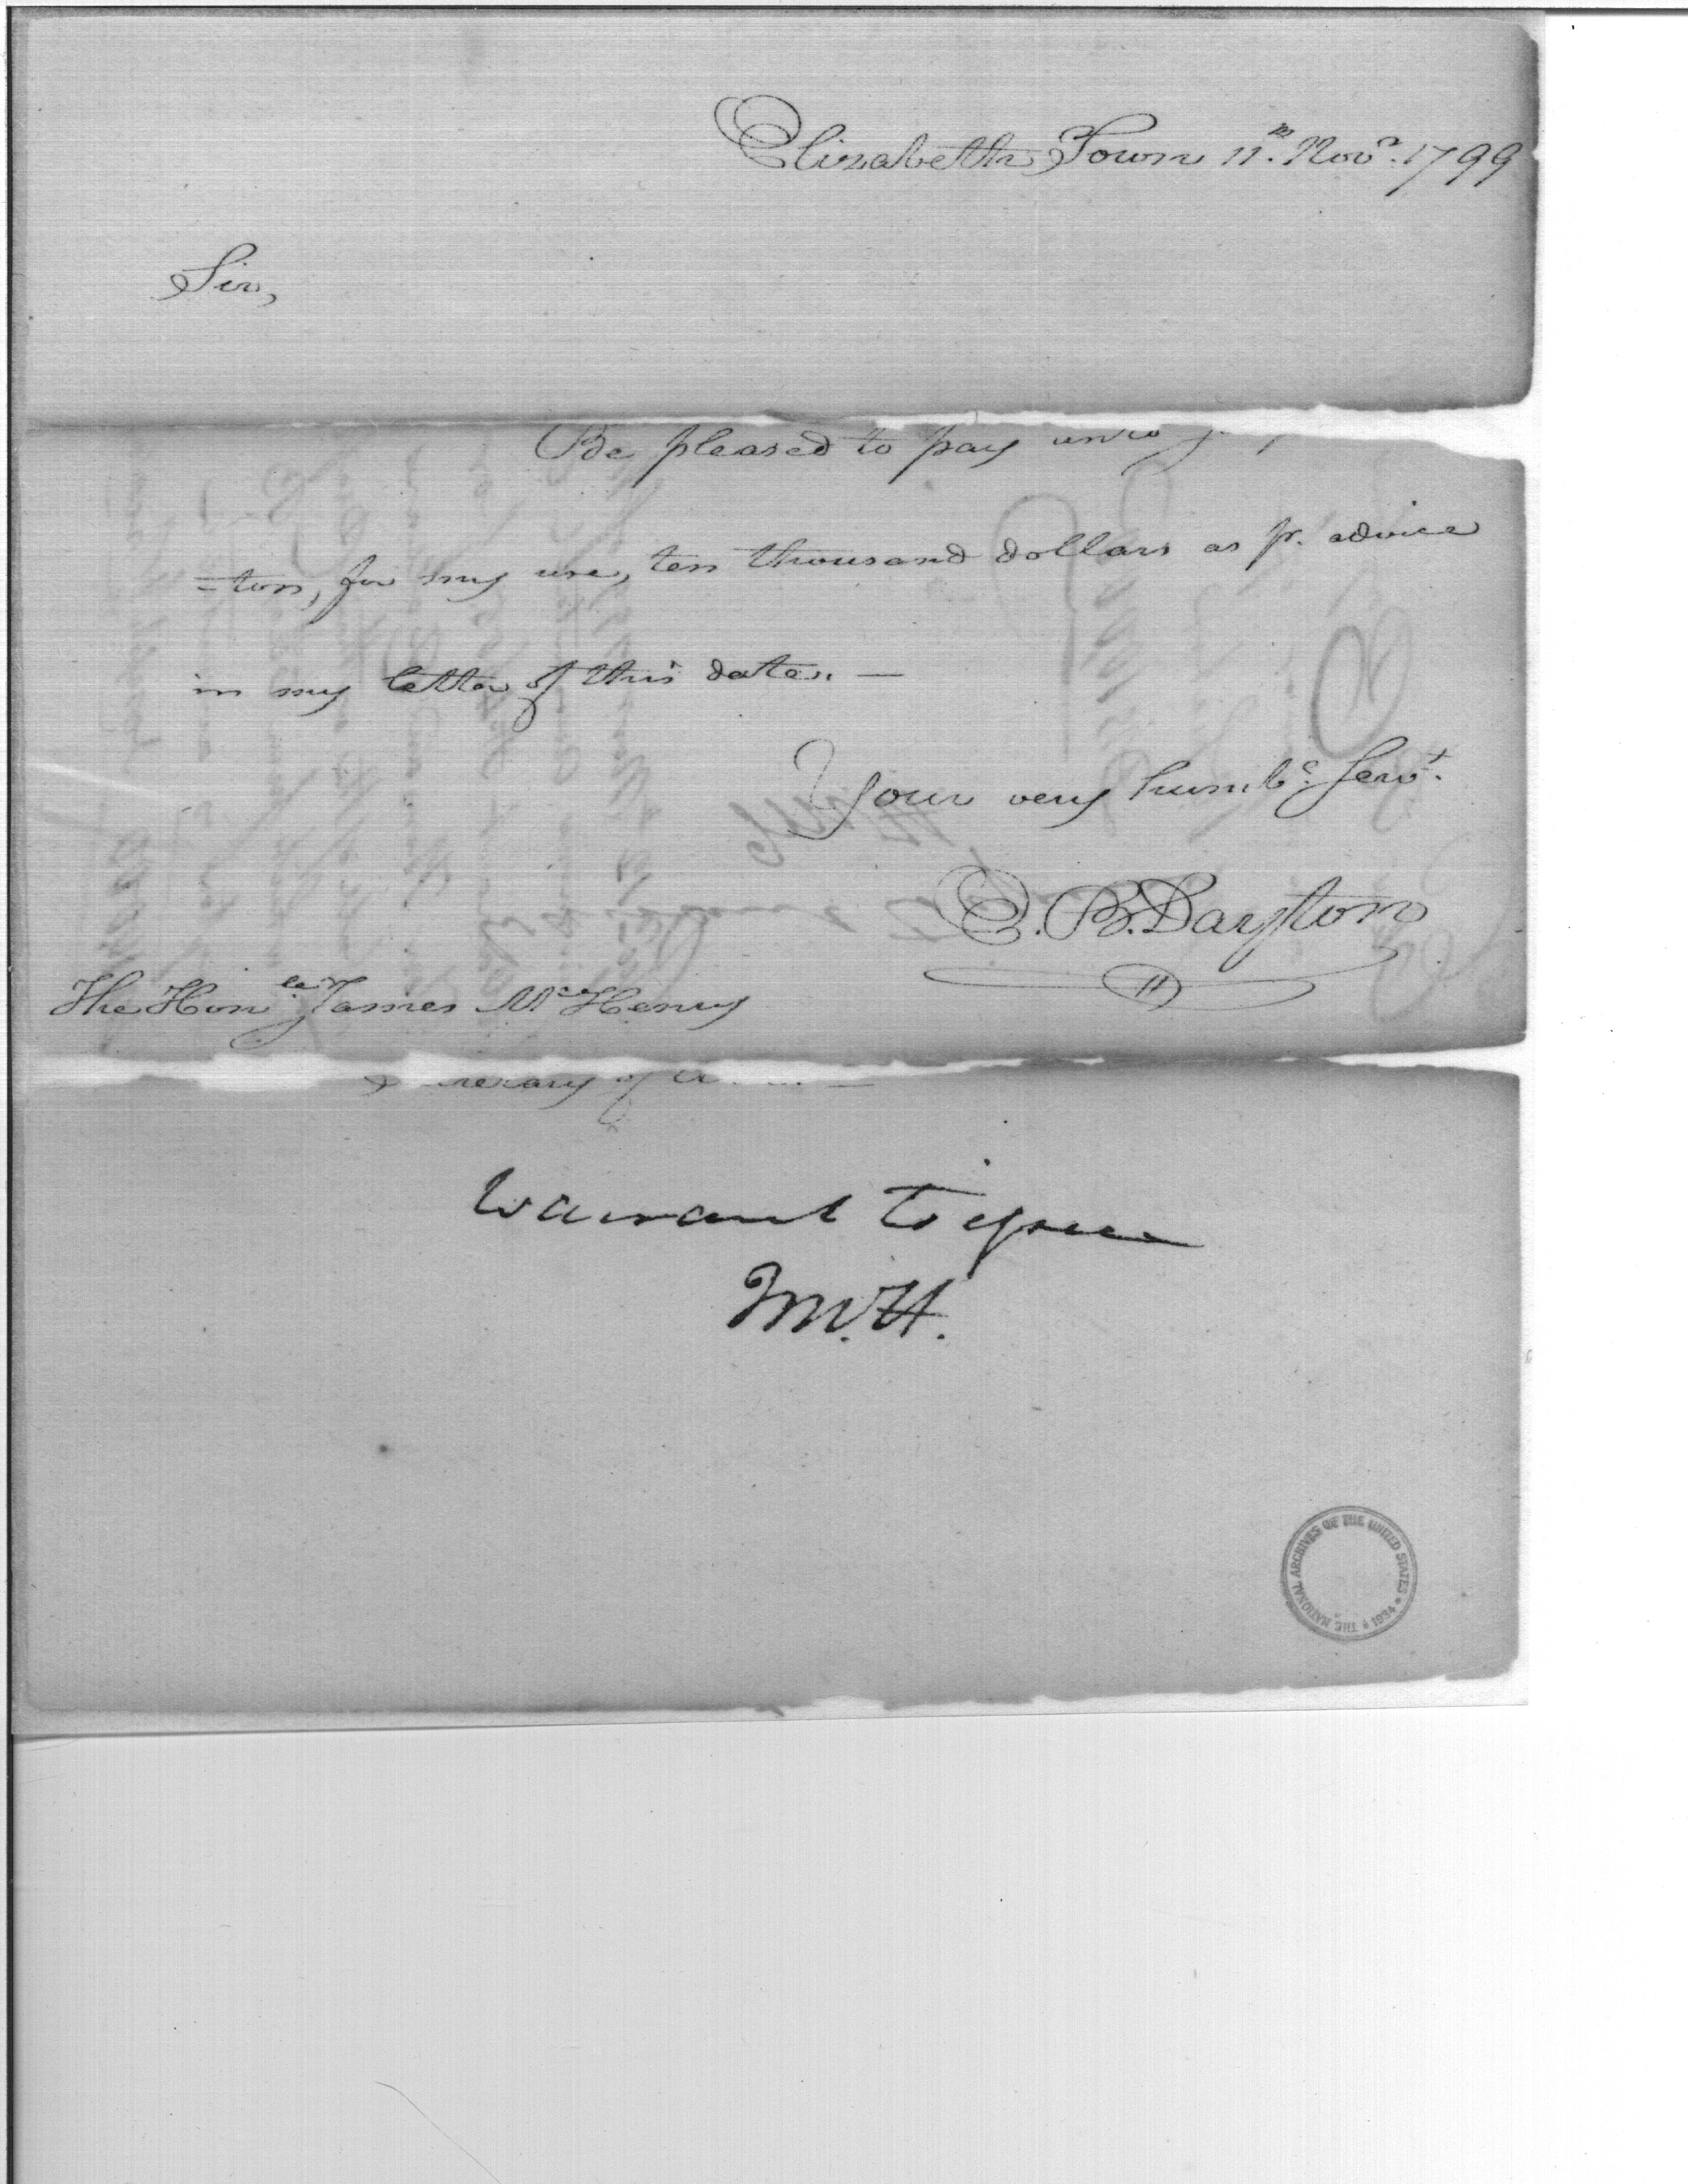 Elizabeth Town 11th. Novr. 1799
Sir,
Be pleased to pay unto
=ton, for my use, ten thousand dollars as pr. advice
in my letter of this date. —
Your very humble. Servt.
E. B. Dayton
The Honle. James McHenry
Secretary of
Warrant to issue
J McH.
THE NATIONAL ARCHIVES OF THE UNITED STATES * 1934 *